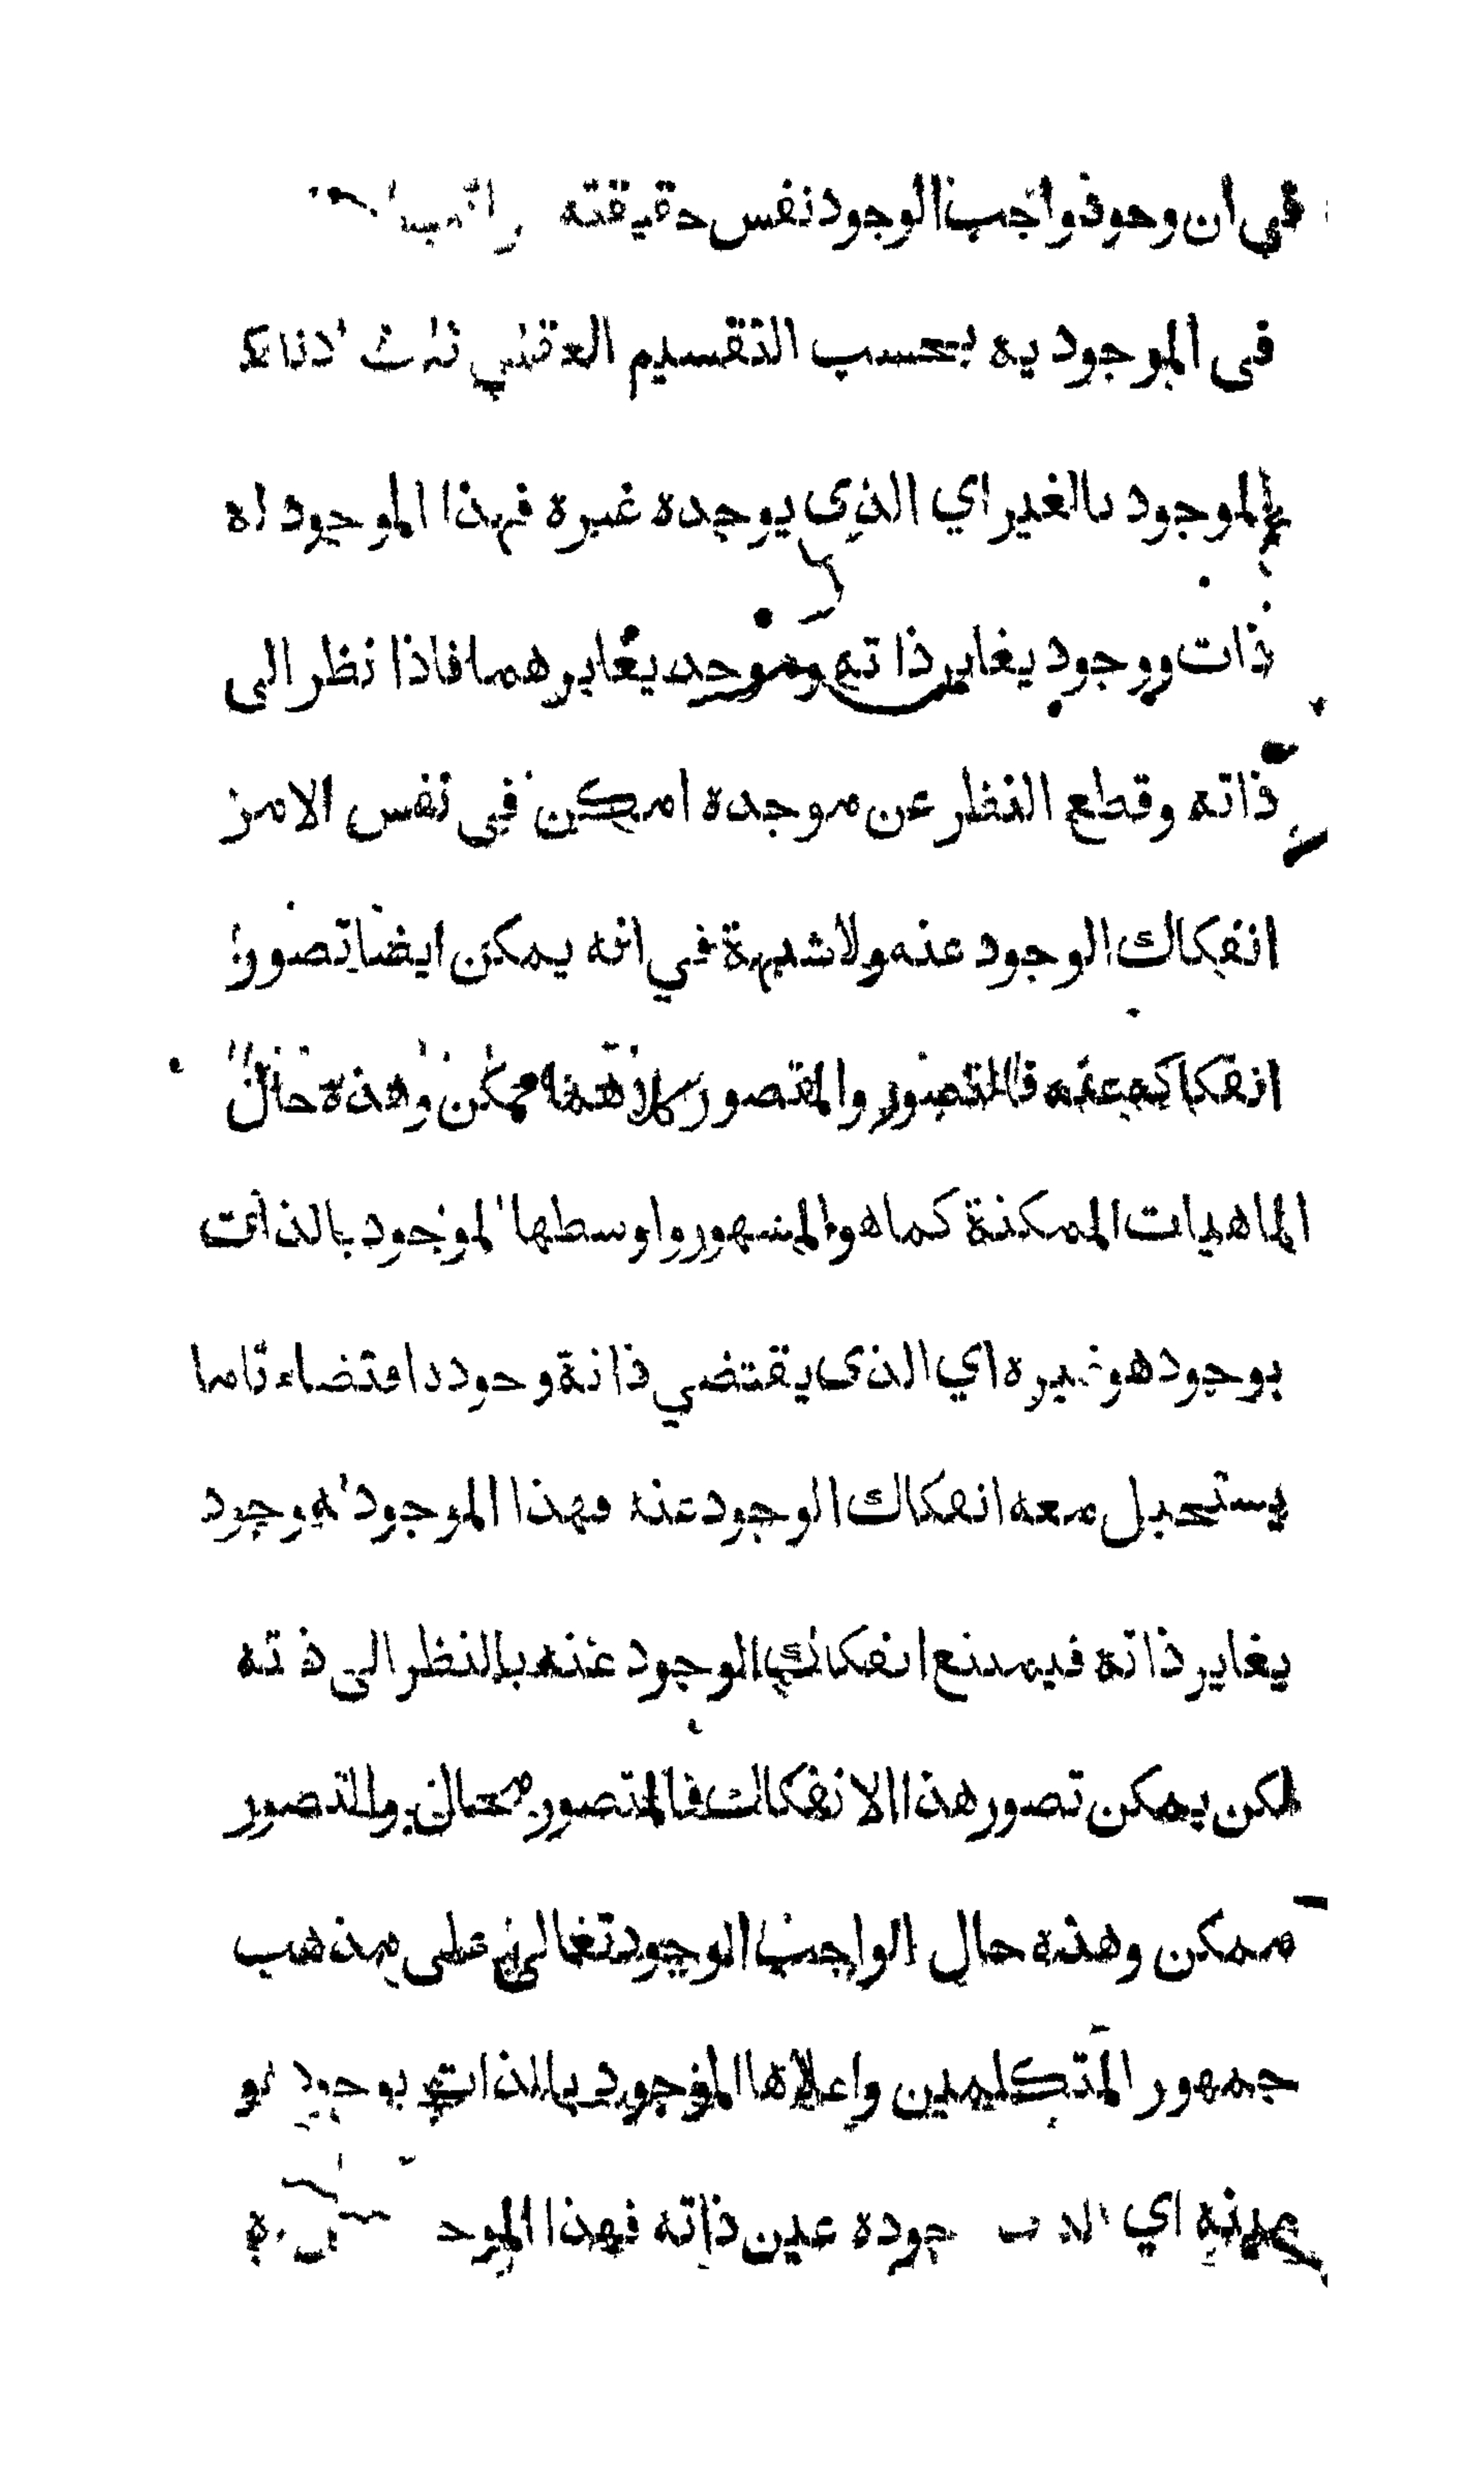 في ان وجود واجب الوجود نفس حقيقته
في الموجودية بحسب التقسيم العقلي ثلاث
الموجود بالغير اي الذي يوجده غيره فهذا الموجود له
ذات ووجود يغاير ذاته وموجد يغايرهما فاذا نظر الى
ذاته وقطع النظر عن موجده امكن في نفس الامر
انفكاك الوجود عنه ولا شبهة في انه يمكن ايضا تصور
انفكاكه عنه فالتصور والمتصور كلاهما ممكن وهذه حال
الماهيات الممكنة كما هو المشهور واوسطها الموجود بالذات
بوجود هو غيره اي الذي يقتضي ذاته وجوده اقتضاء تاما
يستحيل معه انفكاك الوجود عنه فهذا الموجود له وجود
يغاير ذاته فيمتنع انفكاك الوجود عنه بالنظر الى ذاته
لكن يمكن تصور هذا الانفكاك فالمتصور محال والتصور
ممكن وهذه حال الواجب الوجود تعالى على مذهب
جمهور المتكلمين واعلاها الموجود بالذات بوجود هو
عينه اي الذي وجوده عين ذاته فهذا الموجود